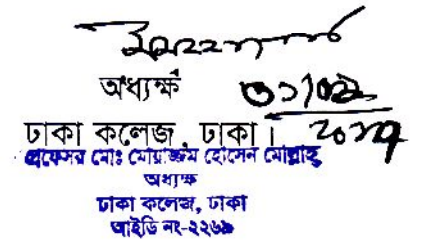 অধ্যক্ষ
ঢাকা কলেজ, ঢাকা।
প্রফেসর মোঃ মোয়াজ্জম হোসেন মোল্লাহ্
অধ্যক্ষ
ঢাকা কলেজ, ঢাকা
আইডি নং-২২৬৯